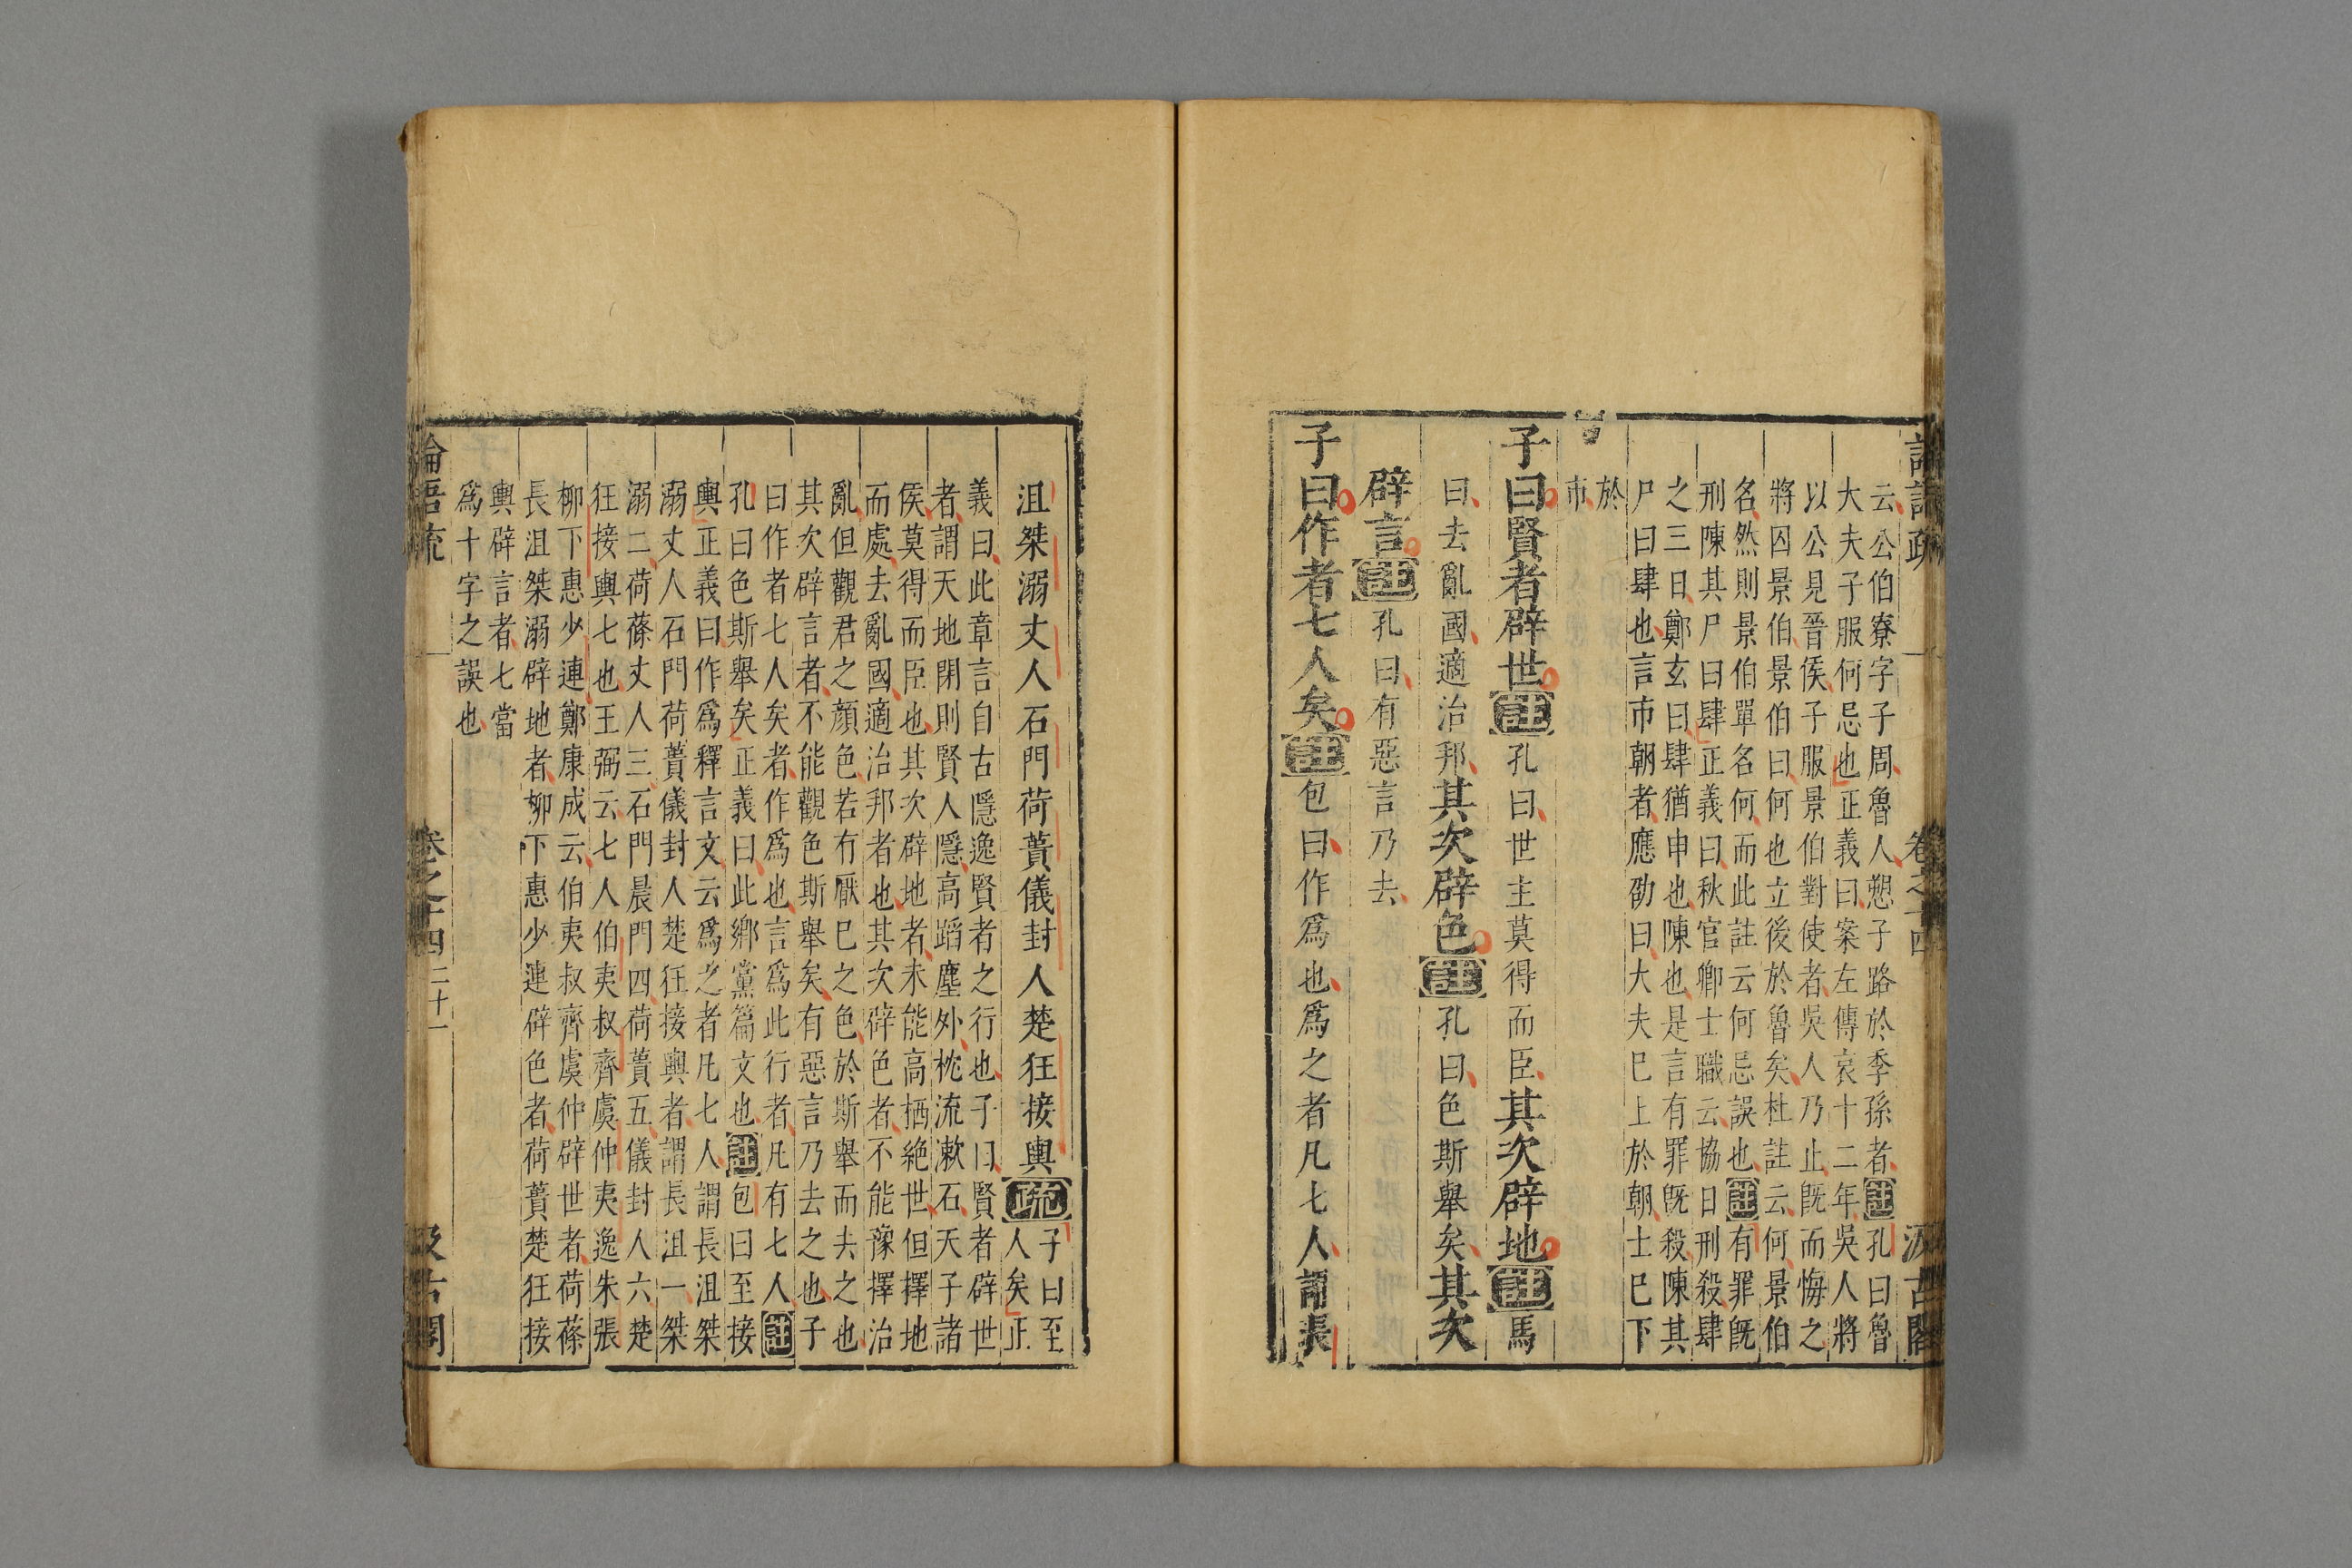 論語疏 卷之十四 汲古閣
云公伯寮字子周魯人愬子路於季孫者註孔曰魯
大夫子服何忌也正義曰案左傳哀十二年吳人將
以公見晉侯子服景伯對使者吳人乃止既而悔之
將囚景伯景伯曰何也立後於魯矣杜註云何景伯
名然則景伯單名何而此註云何忌誤也註有罪既
刑陳其尸曰肆正義曰秋官鄉士職云協日刑殺肆
之三日鄭玄曰肆猶申也陳也是言有罪既殺陳其
尸曰肆也言市朝者應劭曰大夫巳上於朝士巳下
於
市
子曰賢者辟世註孔曰世主莫得而臣其次辟地註馬
曰去亂國適治邦其次辟色註孔曰色斯舉矣其次
辟言註孔曰有惡言乃去
子曰作者七人矣註包曰作爲也爲之者凡七人謂長
沮桀溺丈人石門荷蕢儀封人楚狂接輿疏子曰至
人矣正
義曰此章言自古隱逸賢者之行也子曰賢者辟世
者謂天地閉則賢人隱高蹈塵外枕流漱石天子諸
侯莫得而臣也其次辟地者未能高栖絶世但擇地
而處去亂國適治邦者也其次辟色者不能豫擇治
亂但觀君之顔色若有厭巳之色於斯舉而去之也
其次辟言者不能觀色斯舉矣有惡言乃去之也子
曰作者七人矣者作爲也言爲此行者凡有七人註
孔曰色斯舉矣正義曰此鄉黨篇文也註包曰至接
輿正義曰作爲釋言文云爲之者凡七人謂長沮桀
溺丈人石門荷蕢儀封人楚狂接輿者謂長沮一桀
溺二荷蓧丈人三石門晨門四荷蕢五儀封人六楚
狂接輿七也王弼云七人伯夷叔齊虞仲夷逸朱張
柳下惠少連鄭康成云伯夷叔齊虞仲辟世者荷蓧
長沮桀溺辟地者柳下惠少連辟色者荷蕢楚狂接
輿辟言者七當
爲十字之誤也
論語疏 卷之十四 二十一 汲古閣